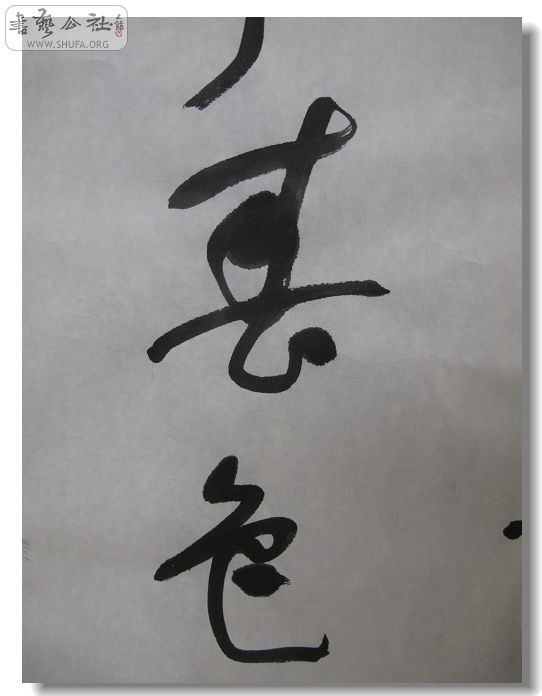 書藝公社
WWW.SHUFA.ORG
春色